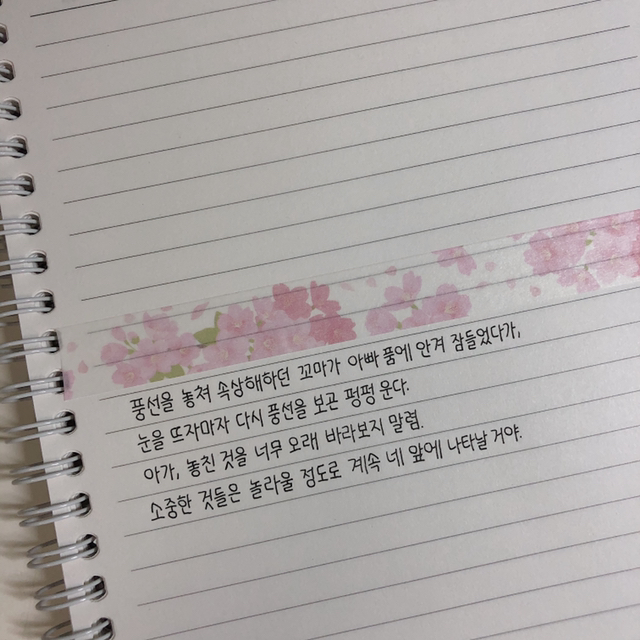 풍선을 놓쳐 속상해하던 꼬마가 아빠 품에 안겨 잠들었다가,
눈을 뜨자마자 다시 풍선을 보곤 펑펑 운다.
아가, 놓친 것을 너무 오래 바라보지 말렴.
소중한 것들은 놀라울 정도로 계속 네 앞에 나타날 거야.